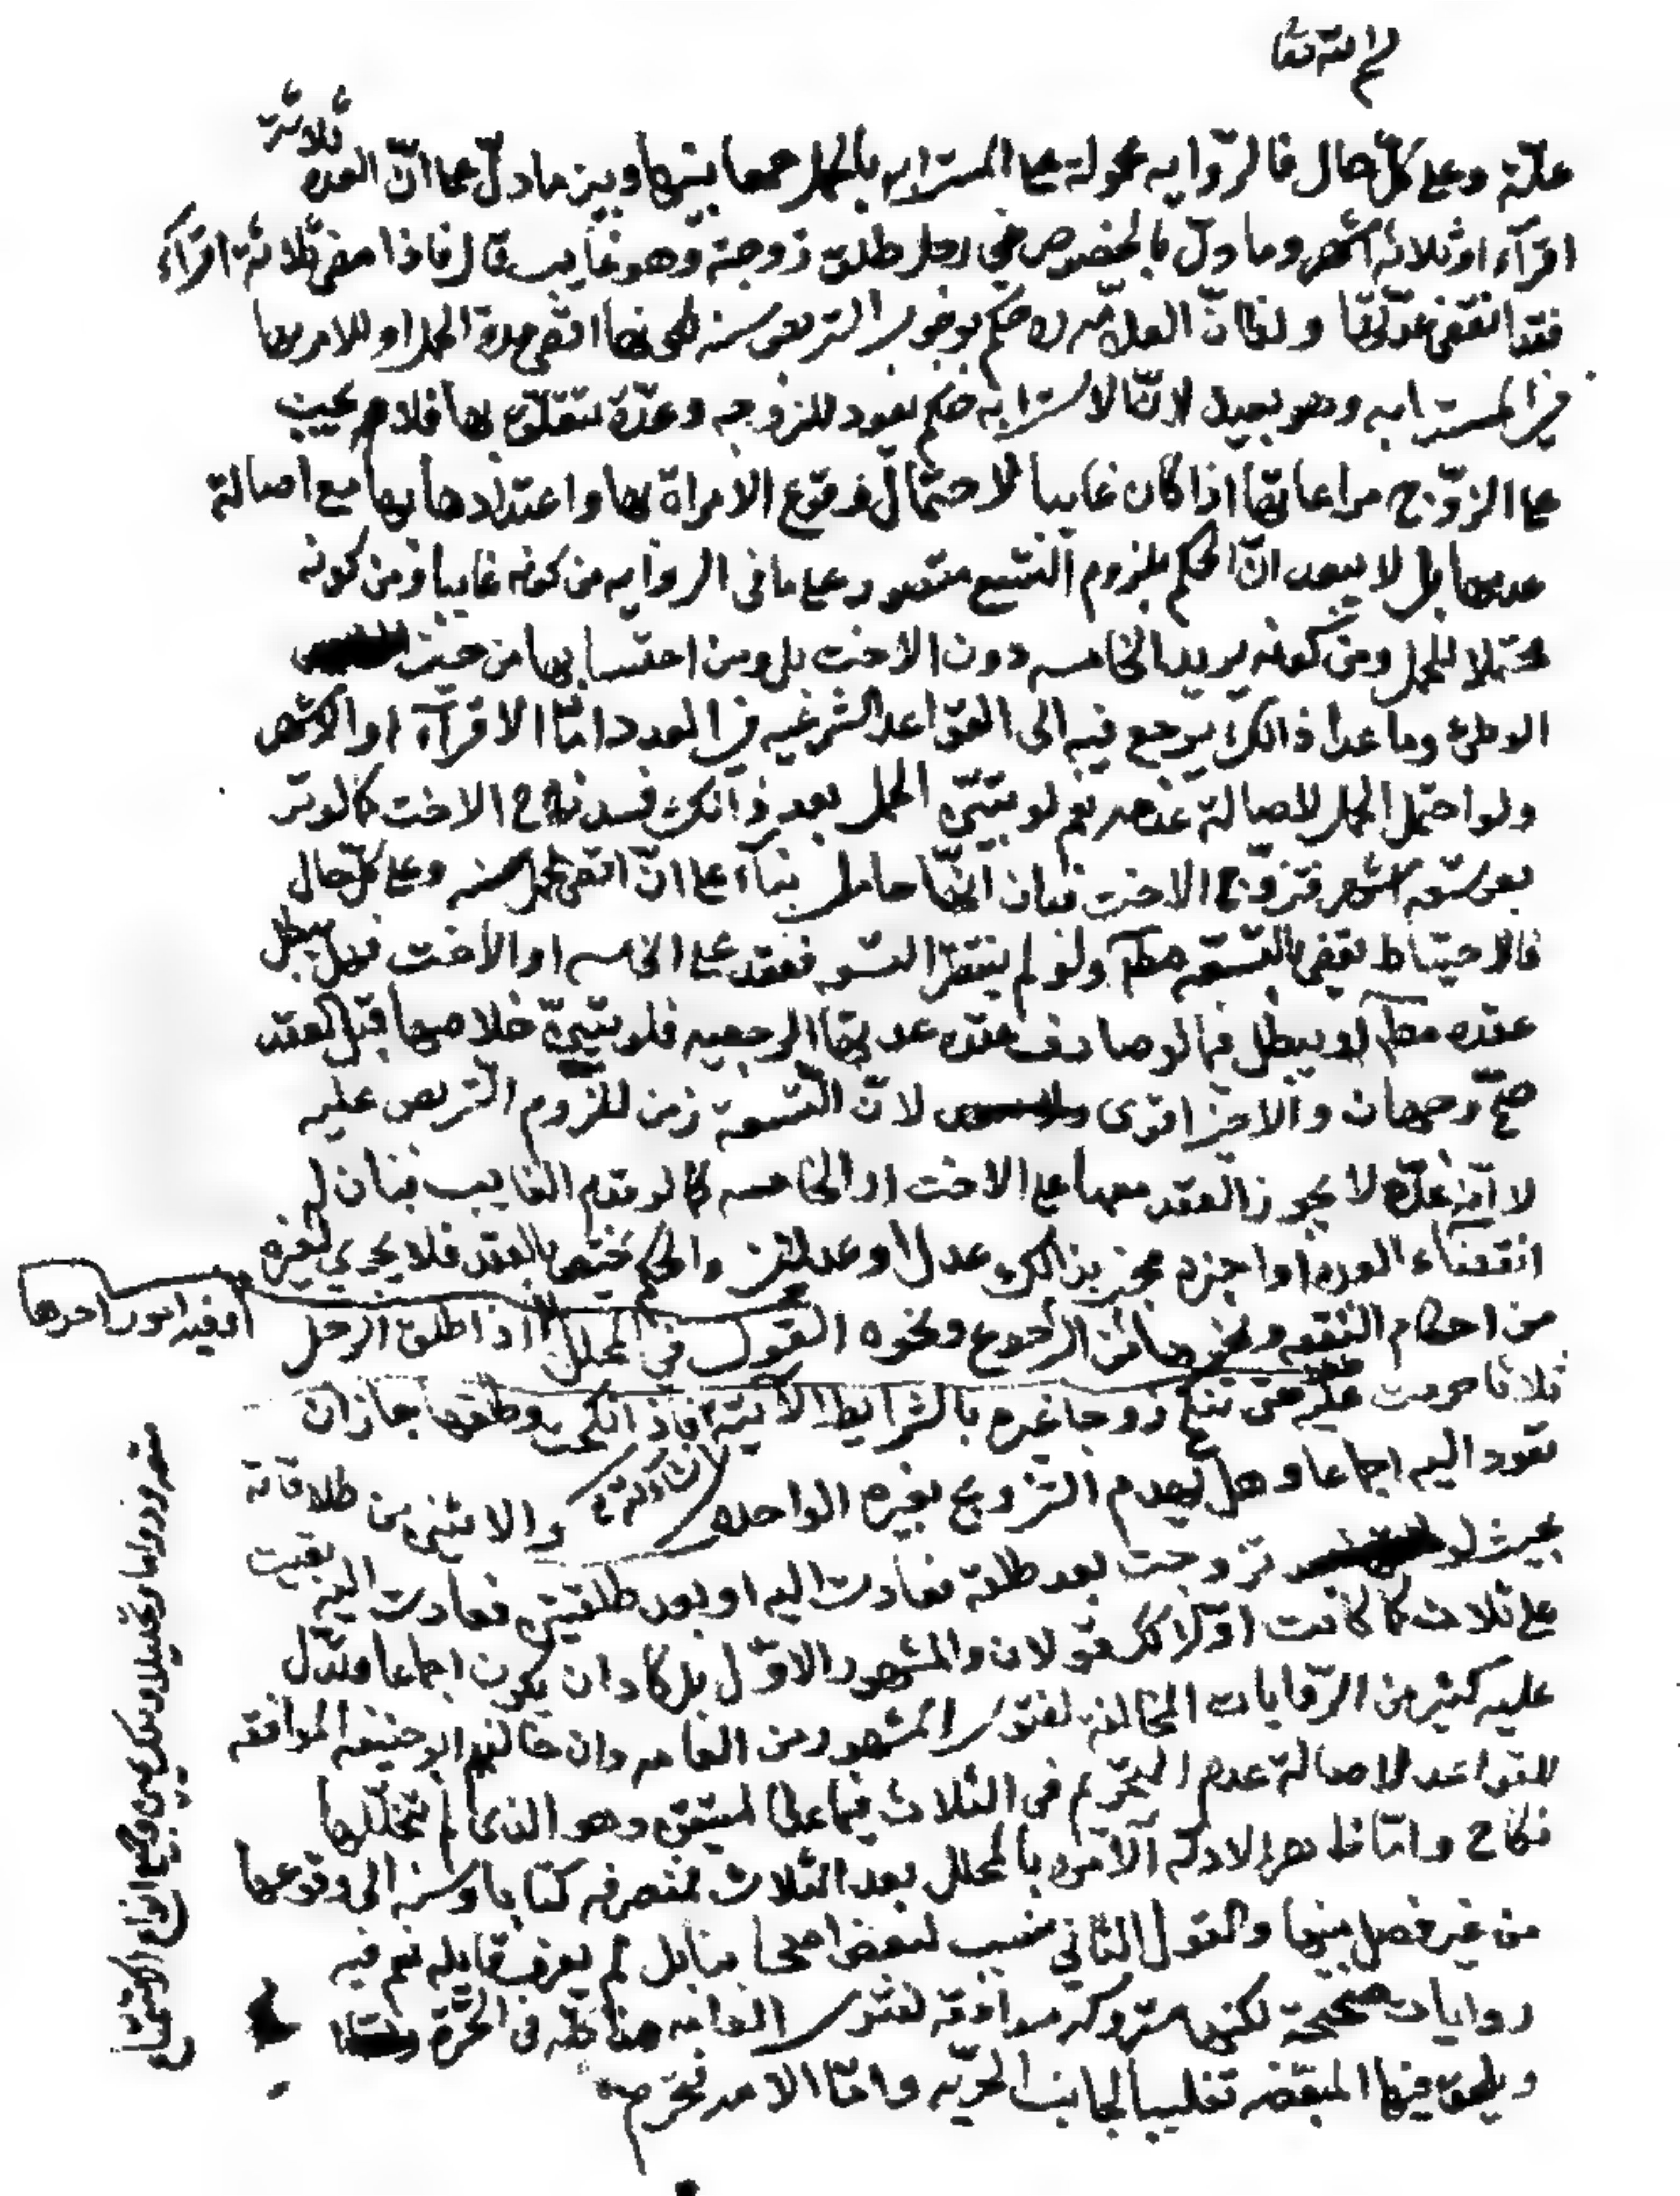 علته وعلى كلّ حال فالرّوايه محمولة على المسترابه بالحمل جمعا بينها وبين ما دلّ على انّ العده ثلاثة
اقرآء او ثلاثه اشهر وما دلّ بالخصوص في رجل طلق زوجته وهو غايب قال فاذا مضى ثلاثة اقرآء
فقد انقضى عدّتها ولذا انّ العلامه ره حكم بوجوب التربص سنه لكونها اقصى مدة الحمل او للامر بها
في المسترابه وهو بعيد لانّ الاسترابه حكم يعود للزوجه وعدّة تتعلّق بها فلا يجب
على الزّوج مراعاتها اذا كان غايبا لاحتمال وقوع الامراة بها واعتدادها بها مع اصالة
عدمها بل لا يبعد انّ الحكم بلزوم التسع مقصور على ما في الروايه من كونه غايبا ومن كونه
محتملا للحمل ومن كونه يريد الخامسه دون الاخت بل ومن احتسابها من حين
الوطئ وما عدا ذالك يرجع فيه الى القواعد الشرعيه في العدد امّا الاقرآء او الاشهر
ولو احتمل الحمل لاصالة عدمه نعم لو تبيّن الحمل بعد ذالك فسد نكاح الاخت كما لو تربص
بعد تسعه اشهر فتزوّج الاخت فبان انّها حامل بنآء على انّ اقصى الحمل سنه وعلى كلّ حال
فالاحتياط يقضي بالتسعه مطلقا ولو لم ينتظر التسعه فعقد على الخامسه او الاخت فهل يبطل
عقده مطلقا او يبطل فيما لو صادف عقده عدتها الرجعيه فلو تبيّن خلاصها قبل العقد
صحّ وجهان والاخير اقوى لانّ التسعة زمن للزوم التربص عليه
لا انّه عدّة لا يجوز العقد معها على الاخت او الخامسه كما لو قدم الغايب فبان له
انقضاء العده او اخبره مخبر بذالك عدل او عدلين والحكم مختص بالعقد فلا يجري لغيره
من احكام النفقه وغيرها من الرجوع ونحوه القول في المحلل اذا طلق الرجل
وفيه امور احدها
ثلاثا حرمت عليه حتى تنكح زوجا غيره بالشرايط الآتيه فاذا نكحت وطلقها جاز ان
تعود اليه اجماعا وهل يهدم التزويج بغيره الواحده والاثنين من طلاقاته
بحيث لو تزوجت بعد طلقة فعادت اليه او بعد طلقتين فعادت اليه بقيت
على ثلاث كما كانت اوّلا قولان والمشهور الاوّل بل كاد ان يكون اجماعا وتدل
عليه كثير من الرّوايات المخالفه لفتوى المشهور من العامه وان خالفهم ابو حنيفه الموافقه
للقواعد لاصالة عدم التحريم في الثلاث فيما عدا المتيقن وهو الذي لم يتخللها
نكاح وامّا ظاهر الادله الآمره بالمحلل بعد الثلاث منصرفه كتابا وسنه الى وقوعها
من غير فصل بينها والقول الثاني منسب لبعض اصحابنا بل لم يعرف قايله نعم فيه
روايات صحيحة لكنها متروكه موافقه لفتوى العامه هذا كله في الحرّة
ويلحق فيها المبعّضه تغليبا لجانب الحرّيه وامّا الامه فتحرم
وجميع انواع الاستمتاع